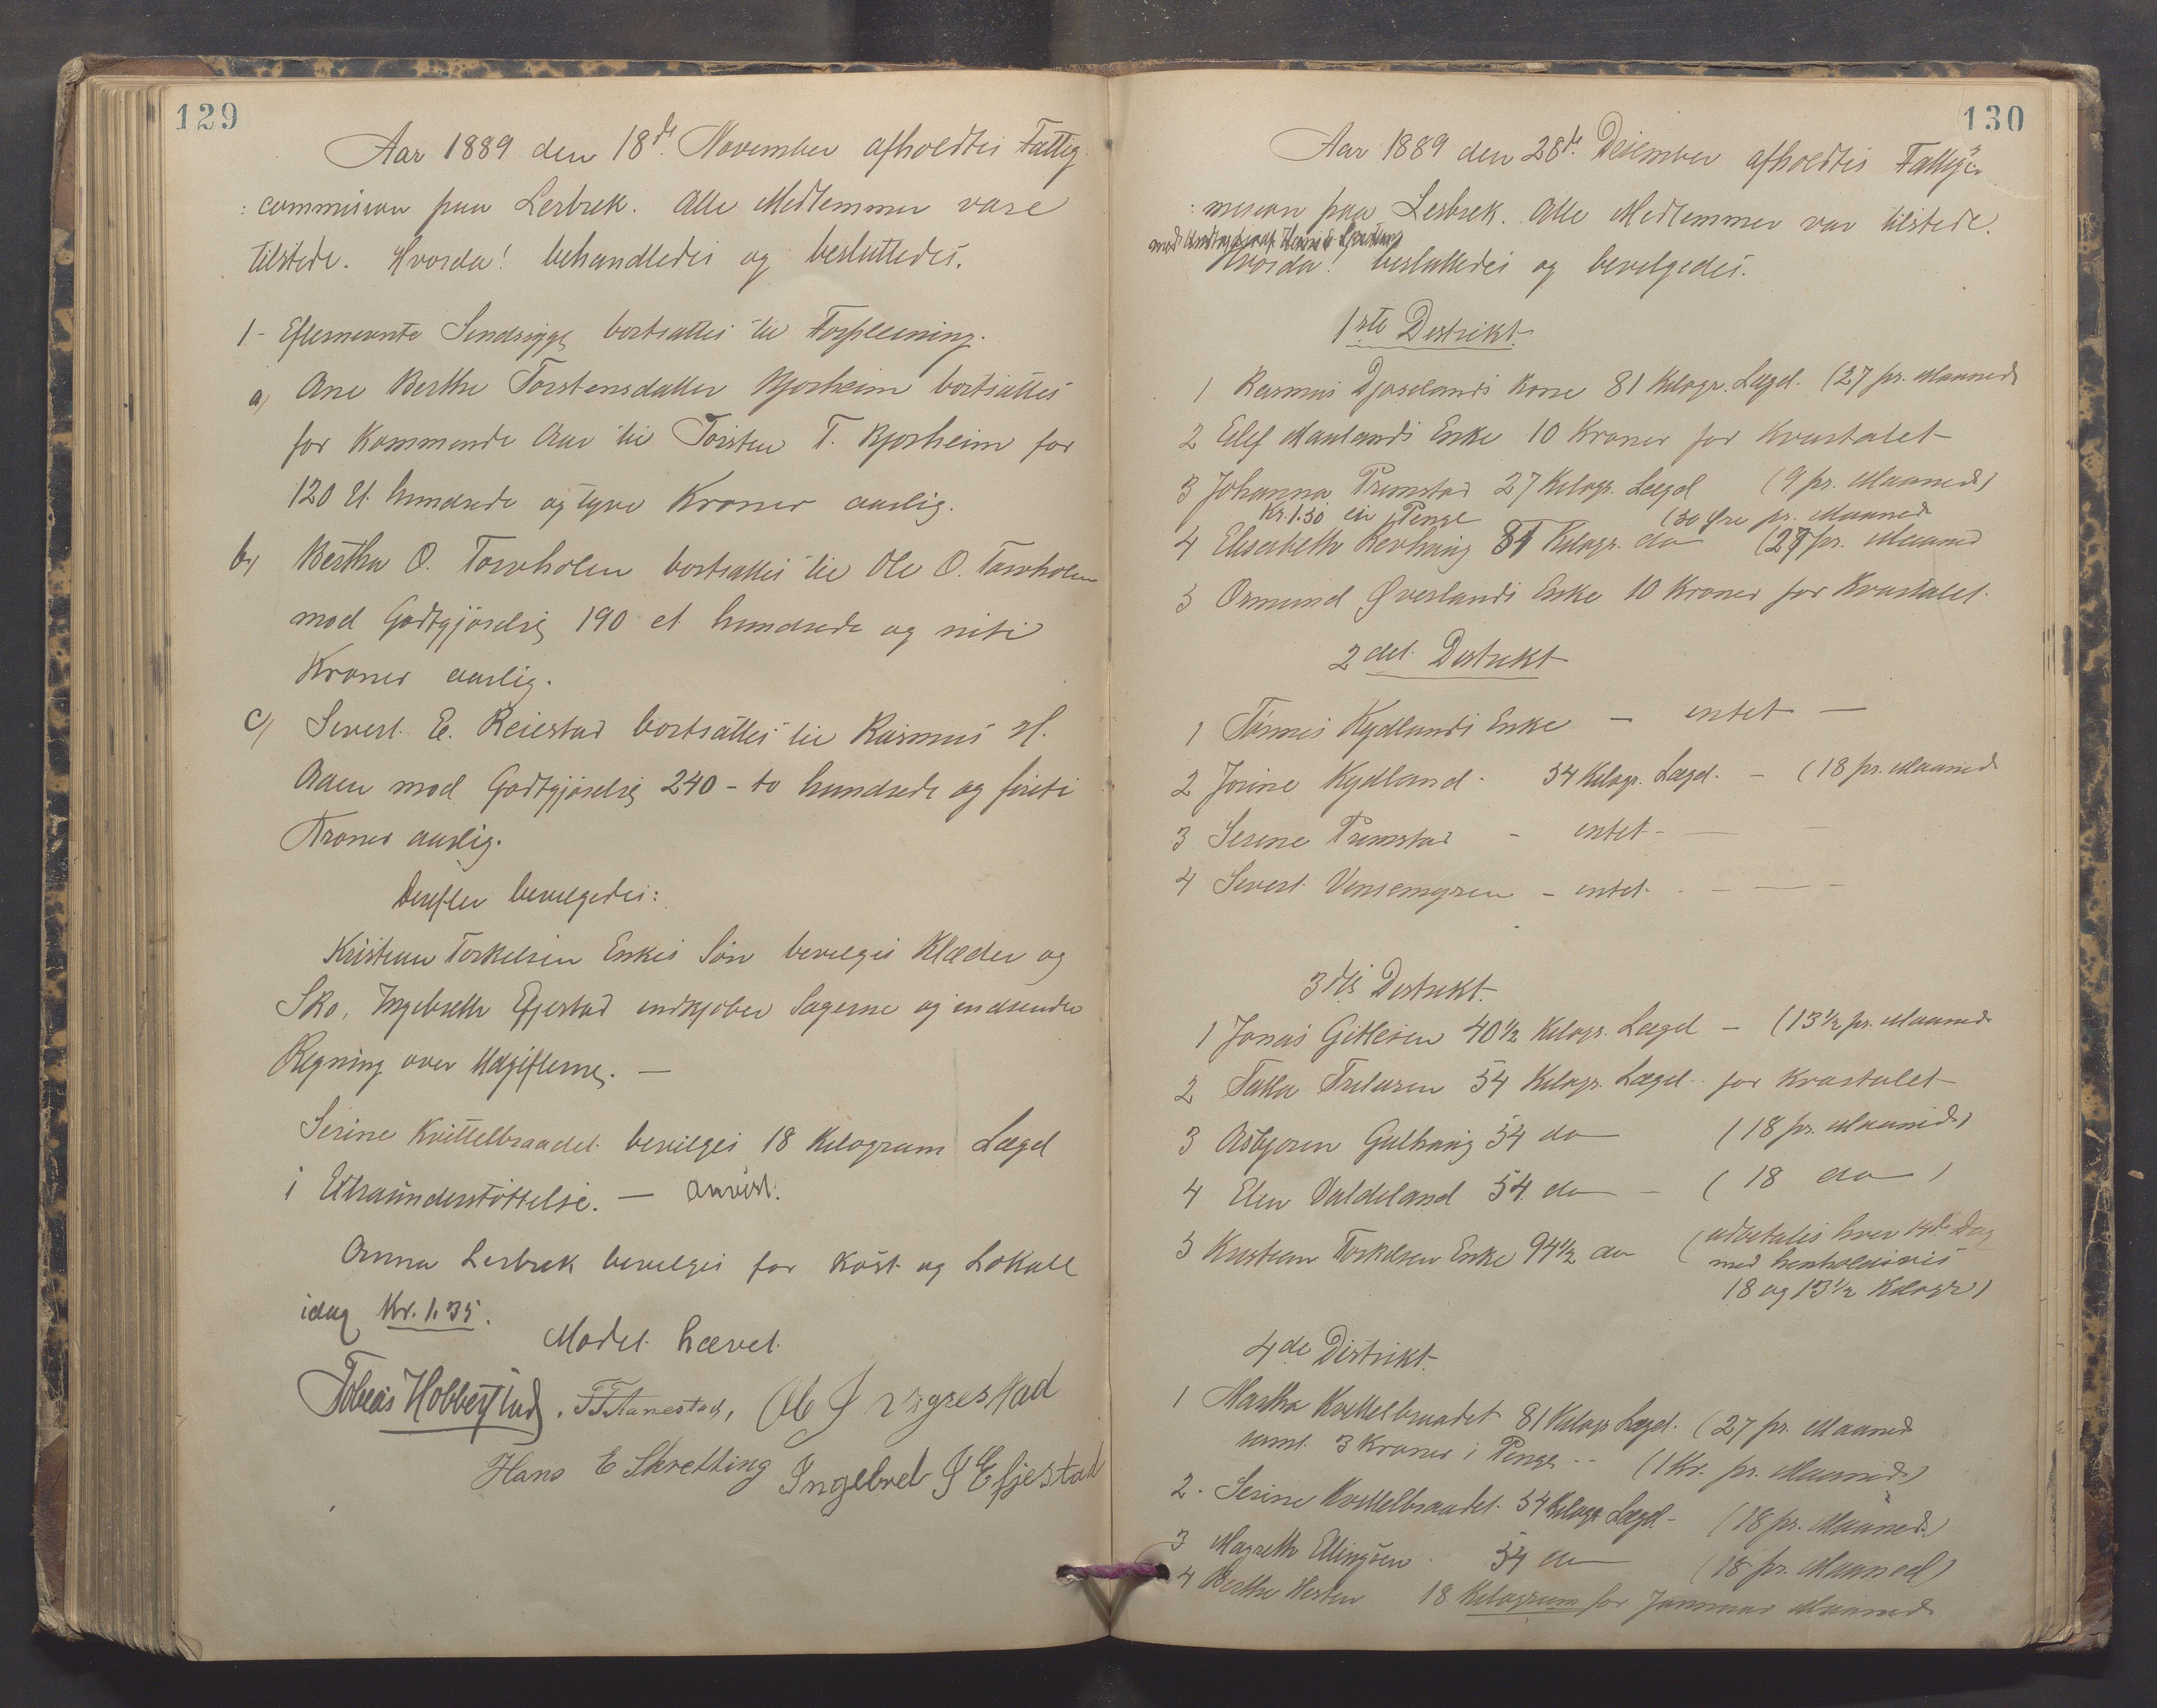 129
Aar 1889 den 18de November afholdtes Fattig
:commision paa Lerbrek. Alle Medlemmer vare
tilstede. Hvorda! behandledes og besluttedes.
1- Efternevnte Sindsyge bortsattes til Forpleining.
a) Ane Berthe Torstensdatter Bjorheim bortsattes
for Kommende Aar til Torsten T. Bjorheim for
120 Et hundrede og tyve Kroner aarlig.
b) Bertha O. Torvholen bortsattes til Ole O. Torvholen
mod Godtgjörelse 190 et hundrede og niti
Kroner aarlig.
c) Sivert E. Reiestad bortsattes til Rasmus H.
Aaen mod Godtgjörelse 240 - to hundrede og firti
Kroner aarlig.
Derefter bevilgedes:
Kristian Torkelsen Enkes Sön bevilges Klæder og
Sko, Ingebreth Efjestad indkjöber Sagerne og indsender
Regning over Udgifterne. —
Serine Kvittelbraadet bevilges 18 Kilogram Lægd
i Extraunderstöttelse. — anvist.
Anna Lerbrek bevilges for Kost og Lokale
idag Kr. 1.35.
Mödet hævet.
Tobias Hobbestad, T T Aanestad, Ole J Vigrestad
Hans E Skretting Ingebret J Efjestad
130
Aar 1889 den 28de Desember afholdtes Fattigco
:mision paa Lerbrek. Alle Medlemmer var tilstede.
med Undtagelse af Hans E Skretting
Hvorda! besluttedes og bevilgedes.
1ste Distrikt.
1 Rasmus Djoselands Kone 81 Kilogr. Lægd. (27 pr. Maaned
2 Elef Maulands Enke 10 Kroner for Kvartalet
3 Johanna Tremstad 27 Kilogr. Lægd (9 pr. Maaned)
Kr. 1.50 i Penge (50 Øre pr. Maaned
4 Elisabeth Revhaug 81 Kilogr. do (27 pr. Maaned
5 Osmund Øverlands Enke 10 Kroner for Kvartalet.
2det Distrikt
1 Tönnes Kydlands Enke — intet —
2 Josine Kydland - 54 Kilogr. Lægd. - (18 pr. Maaned
3 Serine Tremstad - intet -
4 Sivert Vensemyren - intet -
3die Distrikt.
1 Jonas Gitlesen 40½ Kilogr. Lægd — (13½ pr. Maaned
2 Talla Trulsen 54 Kilogr. Lægd - for Kvartalet
3 Asbjoren Gulhaug 54 do (18 pr. Maaned)
4 Elen Valdeland 54 do - (18 do)
5 Kristian Torkelsen Enke 94½ do (udbetales hver 14de Dag
med henholdsvis
18 og 13½ Kilogr)
4de Distrikt.
1 Martha Kvittelbraadet 81 Kilogr Lægd. (27 pr. Maaned
samt 3 Kroner i Penge -- (1 Kr. pr. Maaned)
2. Serine Kvittelbraadet 54 Kilogr Lægd - (18 pr. Maaned)
3 Magreth Ellingsen 54 do (18 pr. Maaned)
4 Berthe Hesten 18 Kilogram for Januar Maaned